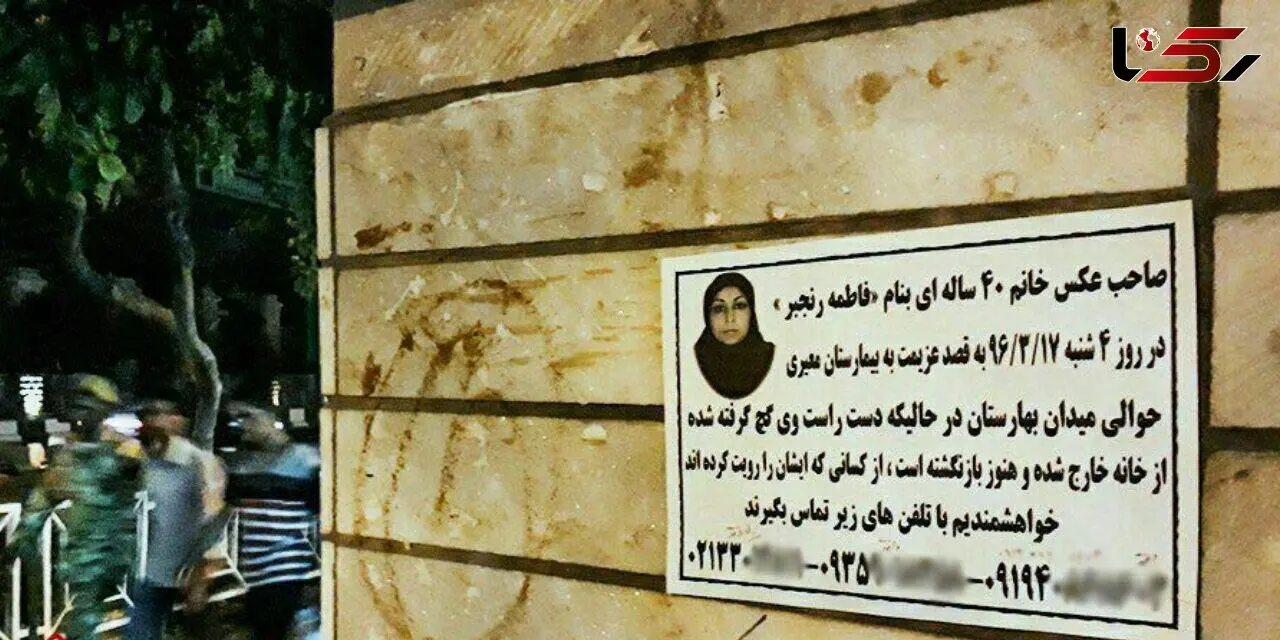 رکنا
صاحب عکس خانم ۴۰ ساله ای بنام «فاطمه رنجبر»
در روز ۴ شنبه ۹۶/۳/۱۷ به قصد عزیمت به بیمارستان معیری
حوالی میدان بهارستان در حالیکه دست راست وی گچ گرفته شده
از خانه خارج شده و هنوز بازنگشته است ، از کسانی که ایشان را رویت کرده اند
خواهشمندیم با تلفن های زیر تماس بگیرند
۰۲۱۳۳۰ -۰۹۳۵ -۰۹۱۹۴۰